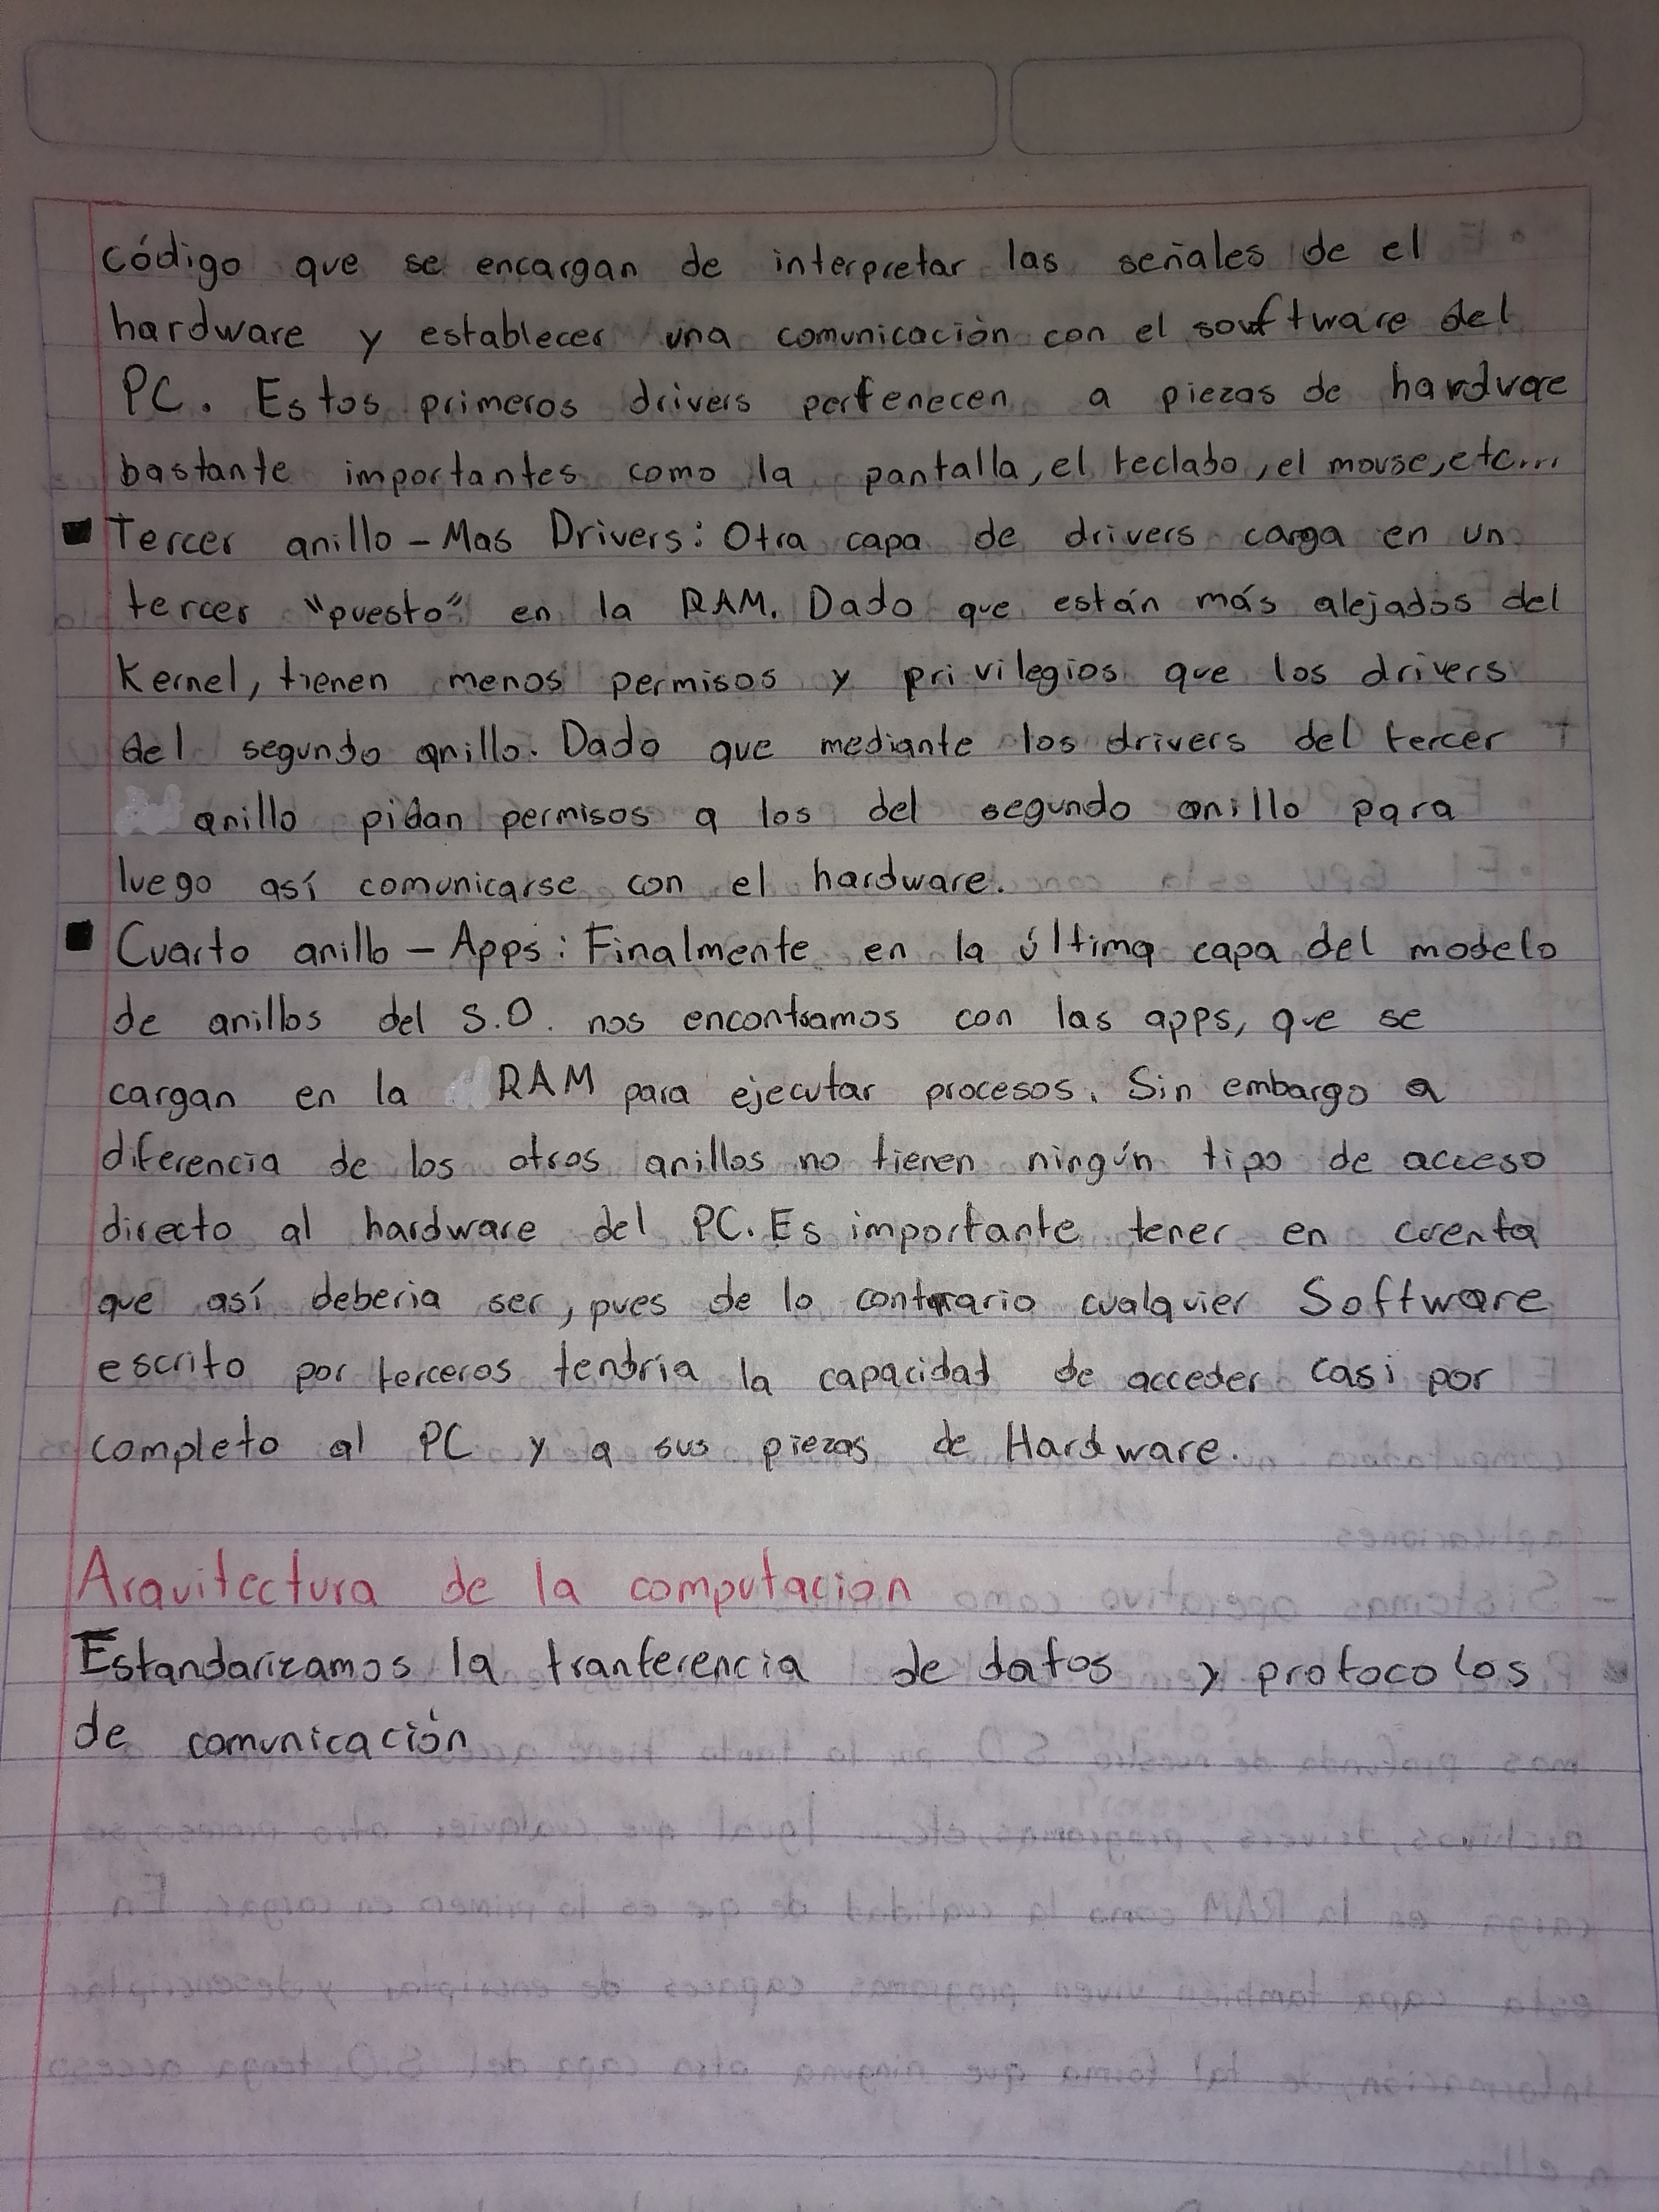 código que se encargan de interpretar las señales de el
hardware y establecer una comunicación con el software del
PC. Estos primeros drivers pertenecen a piezas de hardware
bastante importantes como la pantalla, el teclado, el mouse, etc...
■ Tercer anillo - Mas Drivers: Otra capa de drivers carga en un
tercer "puesto" en la RAM. Dado que están más alejados del
Kernel, tienen menos permisos y privilegios que los drivers
del segundo anillo. Dado que mediante los drivers del tercer
anillo pidan permisos a los del segundo anillo para
luego así comunicarse con el hardware.
■ Cuarto anillo - Apps: Finalmente en la última capa del modelo
de anillos del S.O. nos encontramos con las apps, que se
cargan en la RAM para ejecutar procesos. Sin embargo a
diferencia de los otros anillos no tienen ningún tipo de acceso
directo al hardware del PC. Es importante tener en cuenta
que así deberia ser, pues de lo contrario cualquier Software
escrito por terceros tendría la capacidad de acceder casi por
completo al PC y a sus piezas de Hardware.
Arquitectura de la computación
Estandarizamos la tranferencia de datos y protocolos
de comunicación